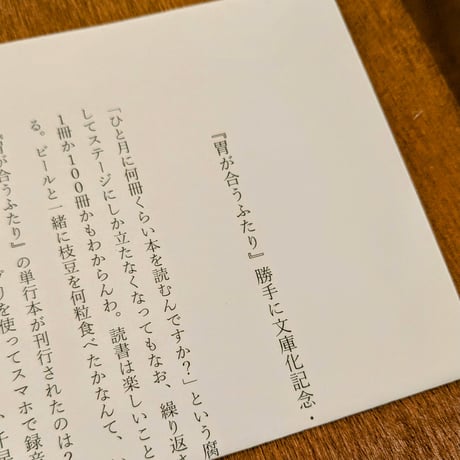 『胃が合うふたり』勝手に文庫化記念・
「ひと月に何冊くらい本を読むんですか?」という腐
してステージにしか立たなくなってもなお、繰り返さ
1冊か100冊かもわからんわ。読書は楽しいこと
る。ビールと一緒に枝豆を何粒食べたかなんて、い
『胃が合うふたり』の単行本が刊行されたのは?
プリを使ってスマホで録音
千早